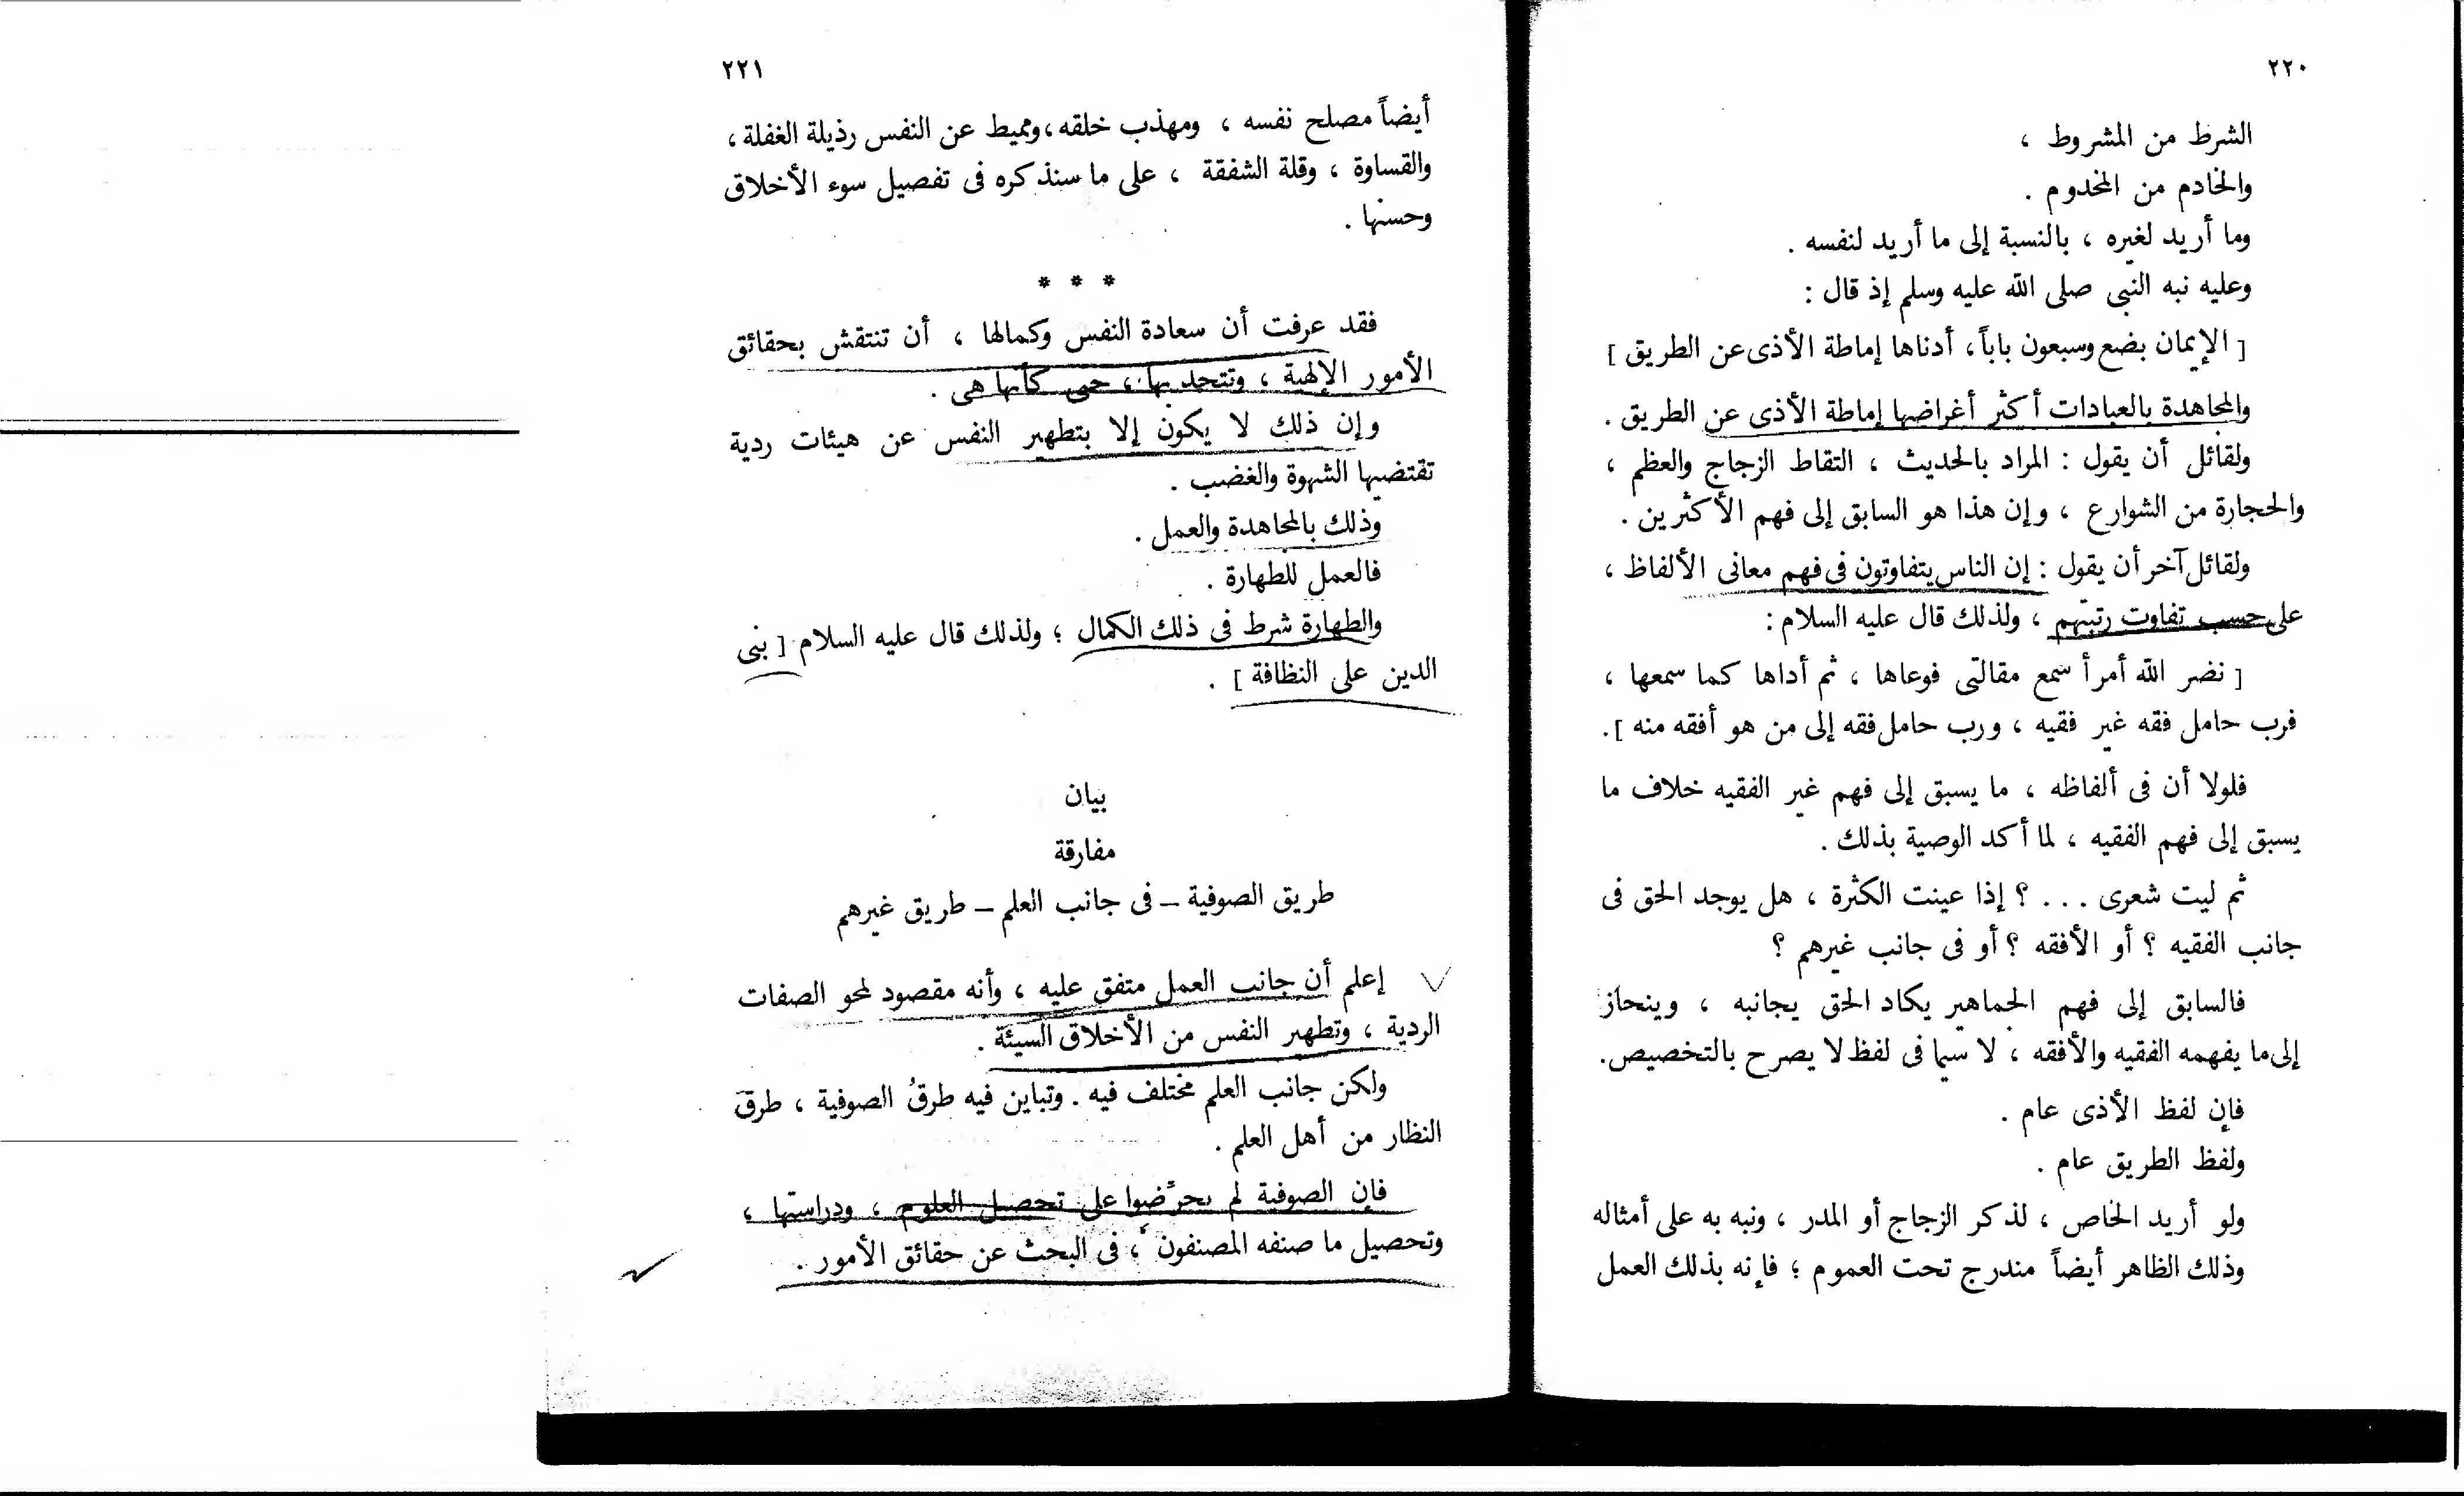 ٢٢٠
الشرط من المشروط ،
والخادم من المخدوم .
وما أريد لغيره ، بالنسبة إلى ما أريد لنفسه .
وعليه نبه النبى صلى الله عليه وسلم إذ قال :
[ الإيمان بضع وسبعون باباً ، أدناها إماطة الأذى عن الطريق ]
والمجاهدة بالعبادات أكثر أغراضها إماطة الأذى عن الطريق .
ولقائل أن يقول : المراد بالحديث ، التقاط الزجاج والعظم ،
والحجارة من الشوارع ، وإن هذا هو السابق إلى فهم الأكثرين .
ولقائل آخر أن يقول : إن الناس يتفاوتون فى فهم معانى الألفاظ ،
على حسب تفاوت رتبتهم ، ولذلك قال عليه السلام :
[ نضر الله أمرأ سمع مقالتى فوعاها ، ثم أداها كما سمعها ،
فرب حامل فقه غير فقيه ، ورب حامل فقه إلى من هو أفقه منه ] .
فلولا أن فى ألفاظه ، ما يسبق إلى فهم غير الفقيه خلاف ما
يسبق إلى فهم الفقيه ، لما أكد الوصية بذلك .
ثم ليت شعرى . . . ؟ إذا عينت الكثرة ، هل يوجد الحق فى
جانب الفقيه ؟ أو الأفقه ؟ أو فى جانب غيرهم ؟
فالسابق إلى فهم الجماهير يكاد الحق يجانبه ، وينحاز
إلى ما يفهمه الفقيه والأفقه ، لا سيما فى لفظ لا يصرح بالتخصيص .
فإن لفظ الأذى عام .
ولفظ الطريق عام .
ولو أريد الخاص ، لذكر الزجاج أو المدر ، ونبه به على أمثاله
وذلك الظاهر أيضاً مندرج تحت العموم ؛ فإنه بذلك العمل
٢٢١
أيضاً مصلح نفسه ، ومهذب خلقه ، ومميط عن النفس رذيلة الغفلة ،
والقساوة ، وقلة الشفقة ، على ما سنذكره فى تفصيل سوء الأخلاق
وحسنها .
* * *
فقد عرفت أن سعادة النفس وكمالها ، أن تنتقش بحقائق
الأمور الإلهية ، وتتحد بها ، حتى كأنها هى .
وإن ذلك لا يكون إلا بتطهير النفس عن هيئات ردية
تقتضيها الشهوة والغضب .
وذلك بالمجاهدة والعمل .
فالعمل للطهارة .
والطهارة شرط فى ذلك الكمال ؛ ولذلك قال عليه السلام [ بنى
الدين على النظافة ] .
بيان
مفارقة
طريق الصوفية – فى جانب العلم – طريق غيرهم
إعلم أن جانب العمل متفق عليه ، وأنه مقصود لمحو الصفات
الردية ، وتطهير النفس من الأخلاق السيئة .
ولكن جانب العلم مختلف فيه . وتباين فيه طرقُ الصوفية ، طرقَ
النظار من أهل العلم .
فإن الصوفية لم يحرِّضوا على تحصيل العلوم ، ودراستها ،
وتحصيل ما صنفه المصنفون ، فى البحث عن حقائق الأمور .